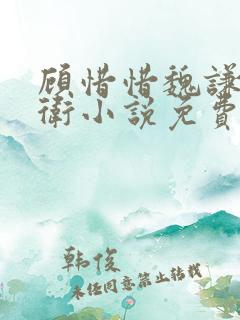 顾惜惜魏謙
衛小説免費
韩俊
未经同意禁止转载